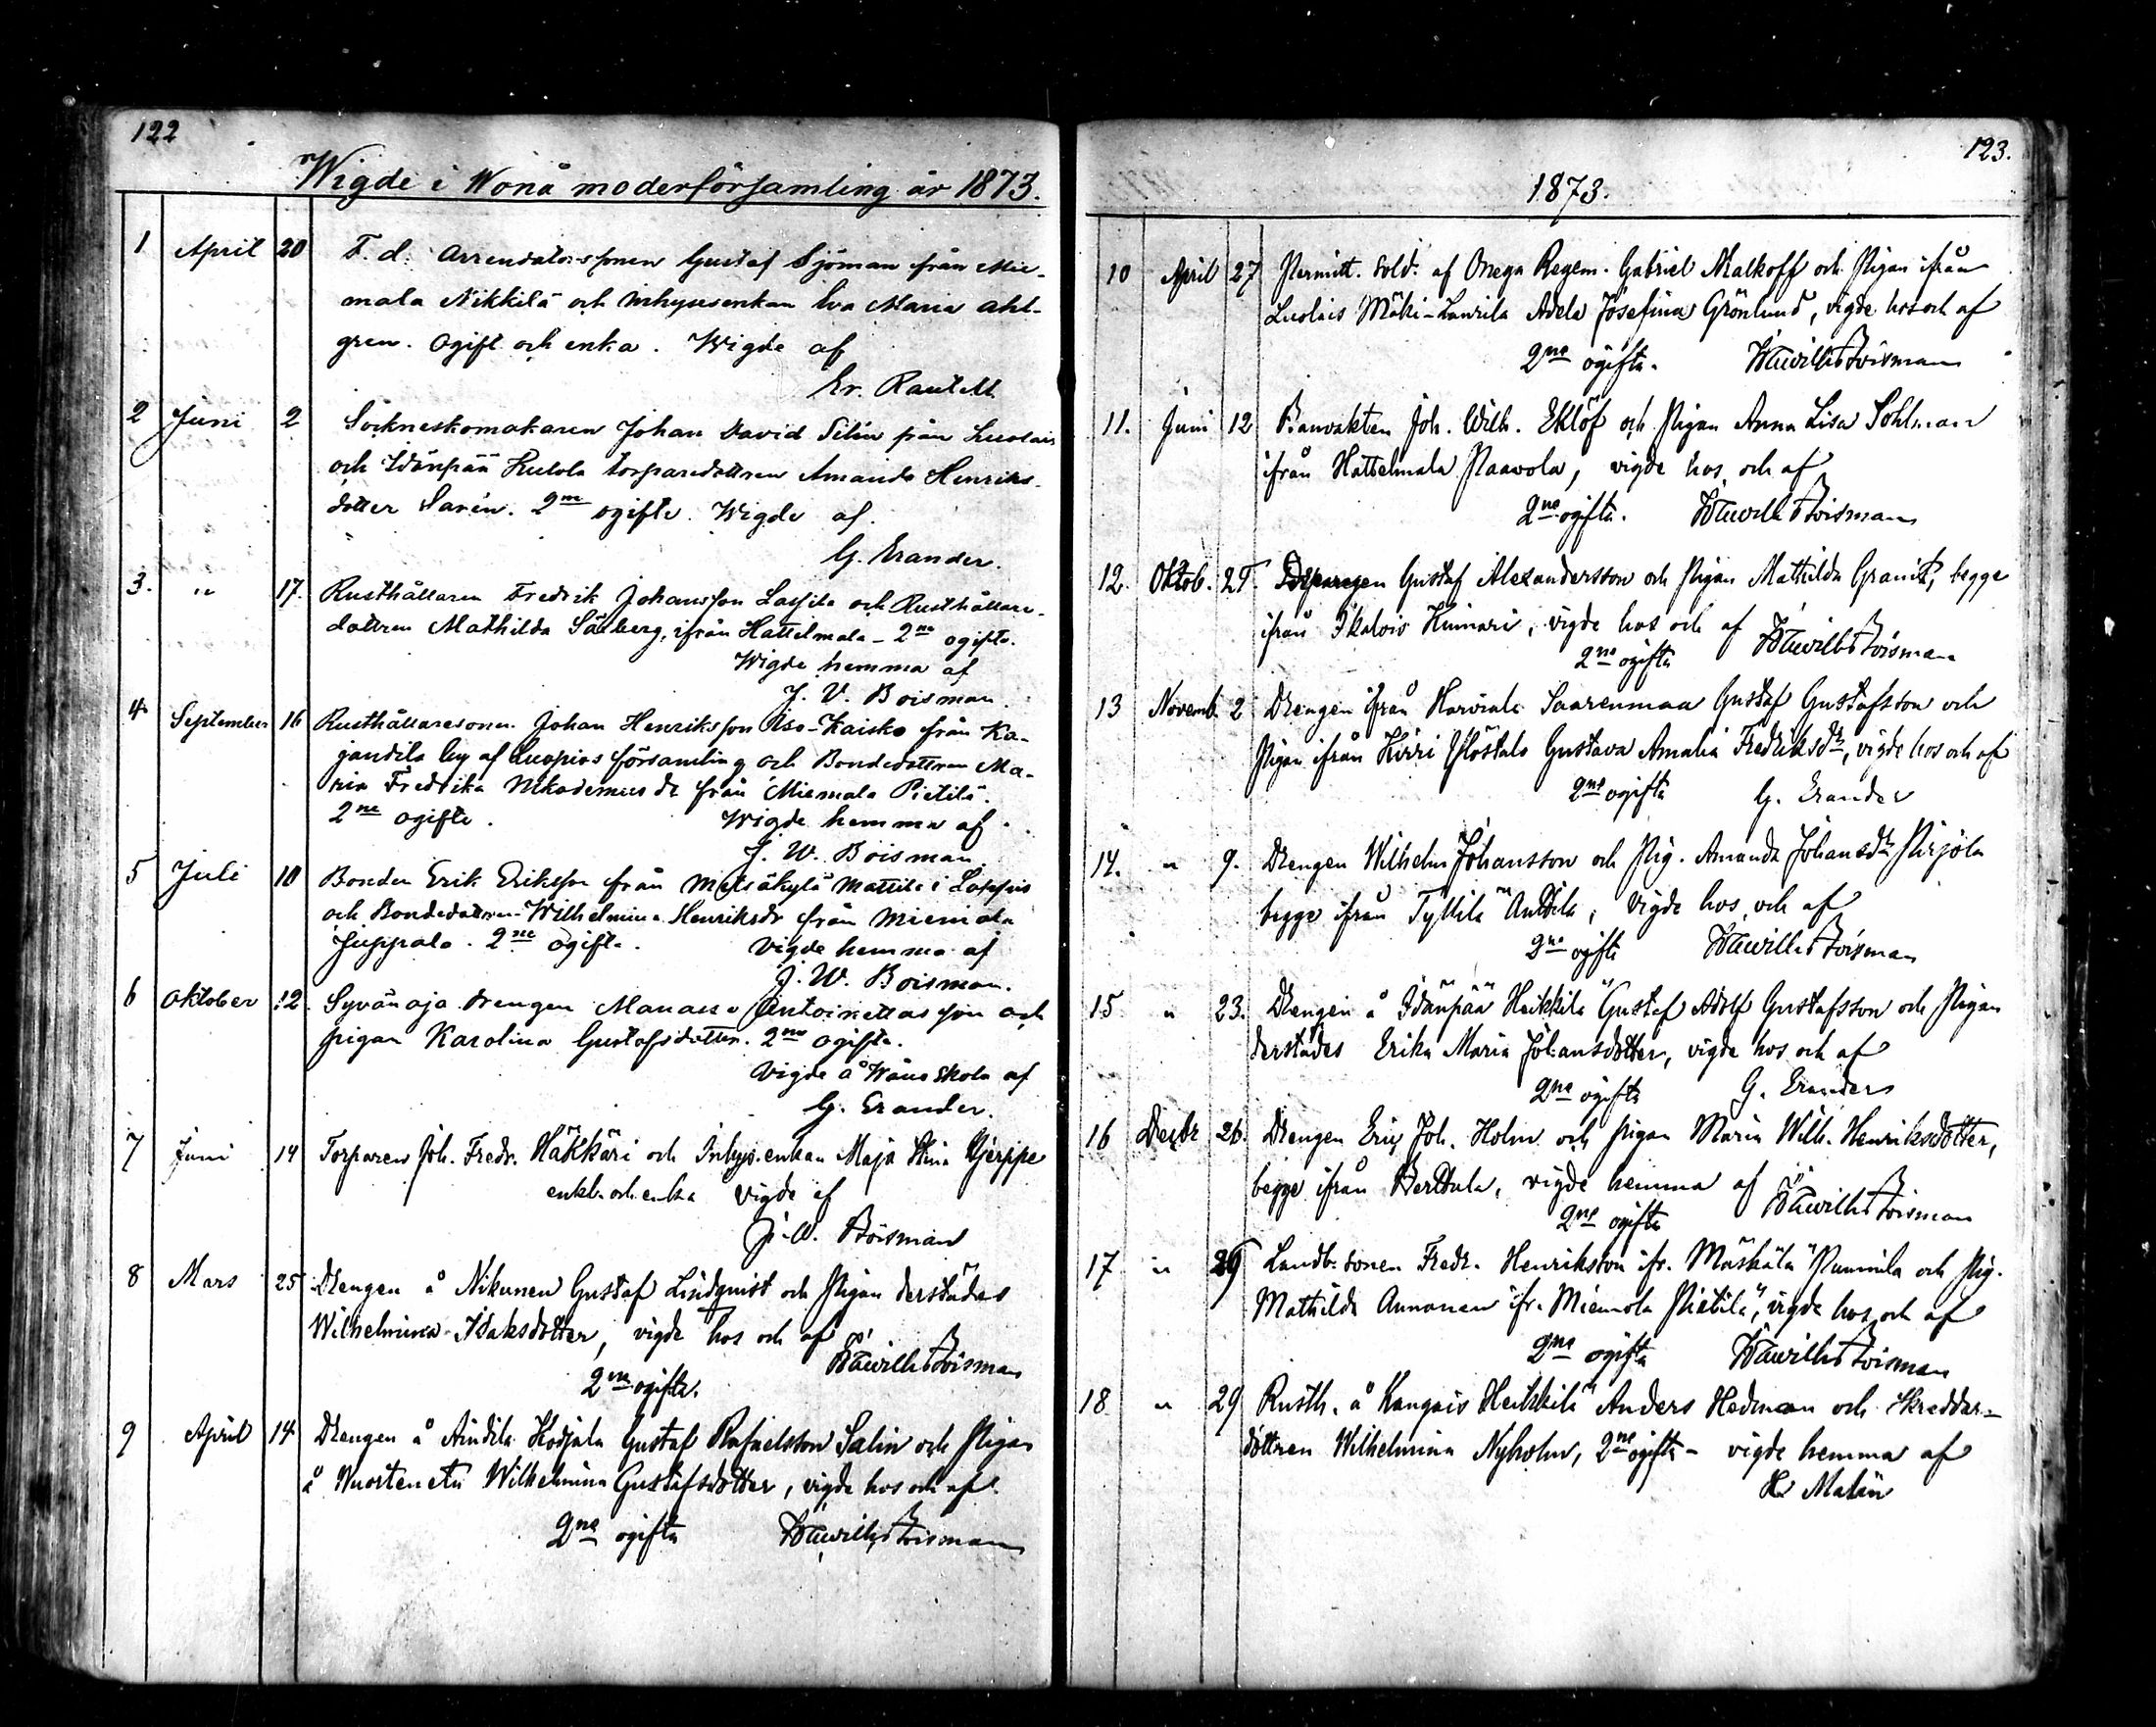 122
Wigde i Wonå moderförsamling år 1873.
1 April 20 F. d. Arrendatorssonen Gustaf Sjöman från Mie-
mala Nikkilä och Inhysesenkan Eva Maria Ahl-
gren. Ogift och enka. Wigde af
Er. Rautell
2 Juni 2 Sockneskomakaren Johan David Silén från Luolais
och Idänpää Kutola torparedottren Amanda Henriks-
dotter Savén. 2ne ogifte. Wigde af.
G. Erander.
3. " 17. Rusthållaren Fredrik Johansson Lassila och Rusthållare-
dottren Mathilda Sälberg, ifrån Hattelmala - 2ne ogifte.
Wigde hemma af
J. V. Boisman.
4. September 16 Rusthållaresonen Johan Henriksson Iso-Kaisko från Ka-
jandila by af Luopiois församling och Bondedottren Ma-
ria Fredrika Nikodemus dr från Miemala Pietilä.
2ne ogifte. Wigde hemma af
J. W. Boisman.
5 Juli 10 Bonden Erik Eriksson från Metsäkylä Mattila i Loppis
och Bondedottren Wilhelmina Henriksdr från Miemala
Juppala. 2ne ogifte. Vigde hemma af
J. W. Boisman.
6 Oktober 12. Syvänoja drengen Manasse Antoinettasson och
pigan Karolina Gustafsdotter. 2ne ogifte.
Vigde å Wånå Skola af
G. Erander.
7 Juni 14 Torparen Joh. Fredr. Häkkäri och Inhys.enkan Maja Stina Hjerppe
enkl. och enka vigde af
J. W. Boisman
8 Mars 25 Drengen å Nikunen Gustaf Lindqvist och Pigan derstädes
Wilhelmina Isaksdotter, vigde hos och af
2ne ogifta. Boisman
9 April 14 Drengen å Äindilä Hodjala Gustaf Rafaelsson Salin och Pigan
å Wuortenetii Wilhelmina Gustafsdotter, vigde hos och af
2ne ogifta Boisman
123.
1873.
10 April 27 Permitt. Sold. af Onega Regem. Gabriel Malkoff och Pigan ifrån
Luolais Mäki-Laurila Adela Josefina Grönlund, vigde hos och af
2ne ogifta. Boisman
11. Juni 12 Banvakten Joh. Wilh. Eklöf och Pigan Anna Lisa Sohlman
ifrån Hattelmala Paavola, vigde hos och af
2ne ogifta. Boisman
12. Oktob. 27. Gustaf Alexandersson och Pigan Mathilda Granit, begge
ifrån Ikalois Humari, vigde hos och af
2ne ogifta Boisman
13 Novemb. 2 Drengen ifrån Harviala Saarenmaa Gustaf Gustafsson och
Pigan ifrån Kiiri Ylöstalo Gustava Amalia Fredriksdr, vigde hos och af
2ne ogifta G. Erander
14. " 9. Drengen Wilhelm Johansson och Pig. Amanda Johansdr Pirjola
begge ifrån Tyllilä Anttila, vigde hos och af
2ne ogifta Boisman
15 " 23. Drengen å Idänpää Heikkilä Gustaf Adolf Gustafsson och Pigan
derstädes Erika Maria Johansdotter, vigde hos och af
2ne ogifta G. Eranders
16 Decbr 26. Drengen Eric Joh. Holm och pigan Maria Wilh. Henriksdotter,
begge ifrån Perttula, vigde hemma af
2ne ogifta Boisman
17 " 29 Landb. sonen Fredr. Henriksson ifr. Mäskälä Punnila och Pig.
Mathilda Annanen ifr. Miemola Pietilä, vigde hos och af
2ne ogifta Boisman
18 " 29 Rusth. å Kangais Heikkilä Anders Hedman och Skreddar-
dottren Wilhelmina Nyholm, 2ne ogifta - vigde hemma af
Malin